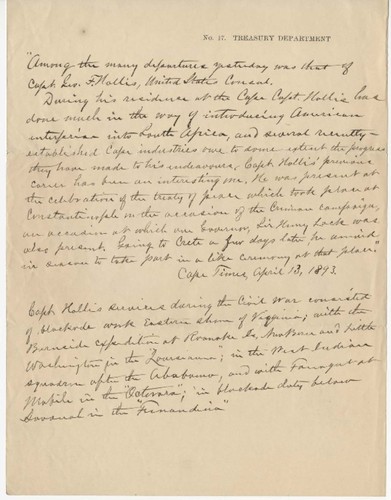 No. 17. TREASURY DEPARTMENT
"Among the many departures yesterday was that of
Capt. Geo. F. Hollis, United States Consul.
During his residence at the Cape Capt. Hollis has
done much in the way of introducing American
enterprise into South Africa, and several recently-
established Cape industries owe to some extent the progress
they have made to his endeavours. Capt. Hollis' previous
career has been an interesting one. He was present at
the celebration of the treaty of peace which took place at
Constantinople on the occasion of the Crimean campaign,
an occasion at which our Governor, Sir Henry Lock was
also present. Going to Crete a few days later he arrived
in season to take part in a like ceremony at that place."
Cape Times, April 13, 1893.
Capt. Hollis services during the Civil War consisted
of blockade work Eastern shore of Virginia; with the
Burnside expedition at Roanoke Is, Newbern and Little
Washington in the; in the West Indian
squadron after the Alabama, and with Farragut at
Mobile in the "Octorara"; in blockade duty below
Savanah in the "Fernandina"